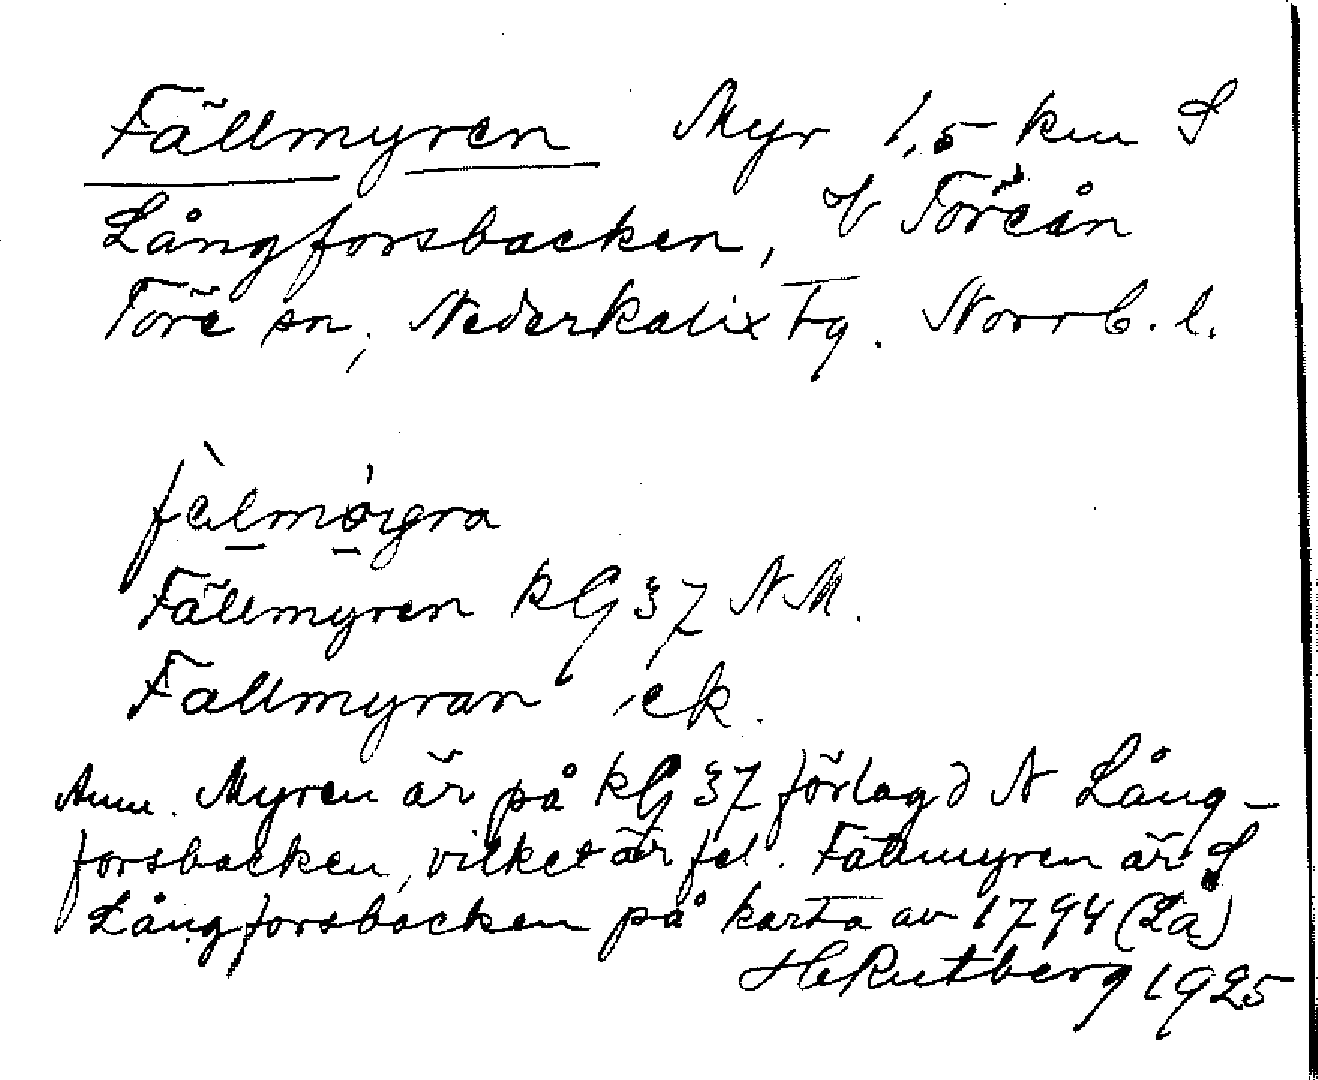 Fällmyren Myr 1,5 km S
Långforsbacken, V Töreån
Töre sn, Nederkalix tg. Norrb. l.
fèlmøi̯ra
Fällmyren kG 37 NM.
Fällmyran ek.
Anm. Myren är på kG 37 förlagd N Lång-
forsbacken, vilket är fel. Fällmyren är S
Långforsbacken på karta av 1794 (La)
HcRutberg 1925